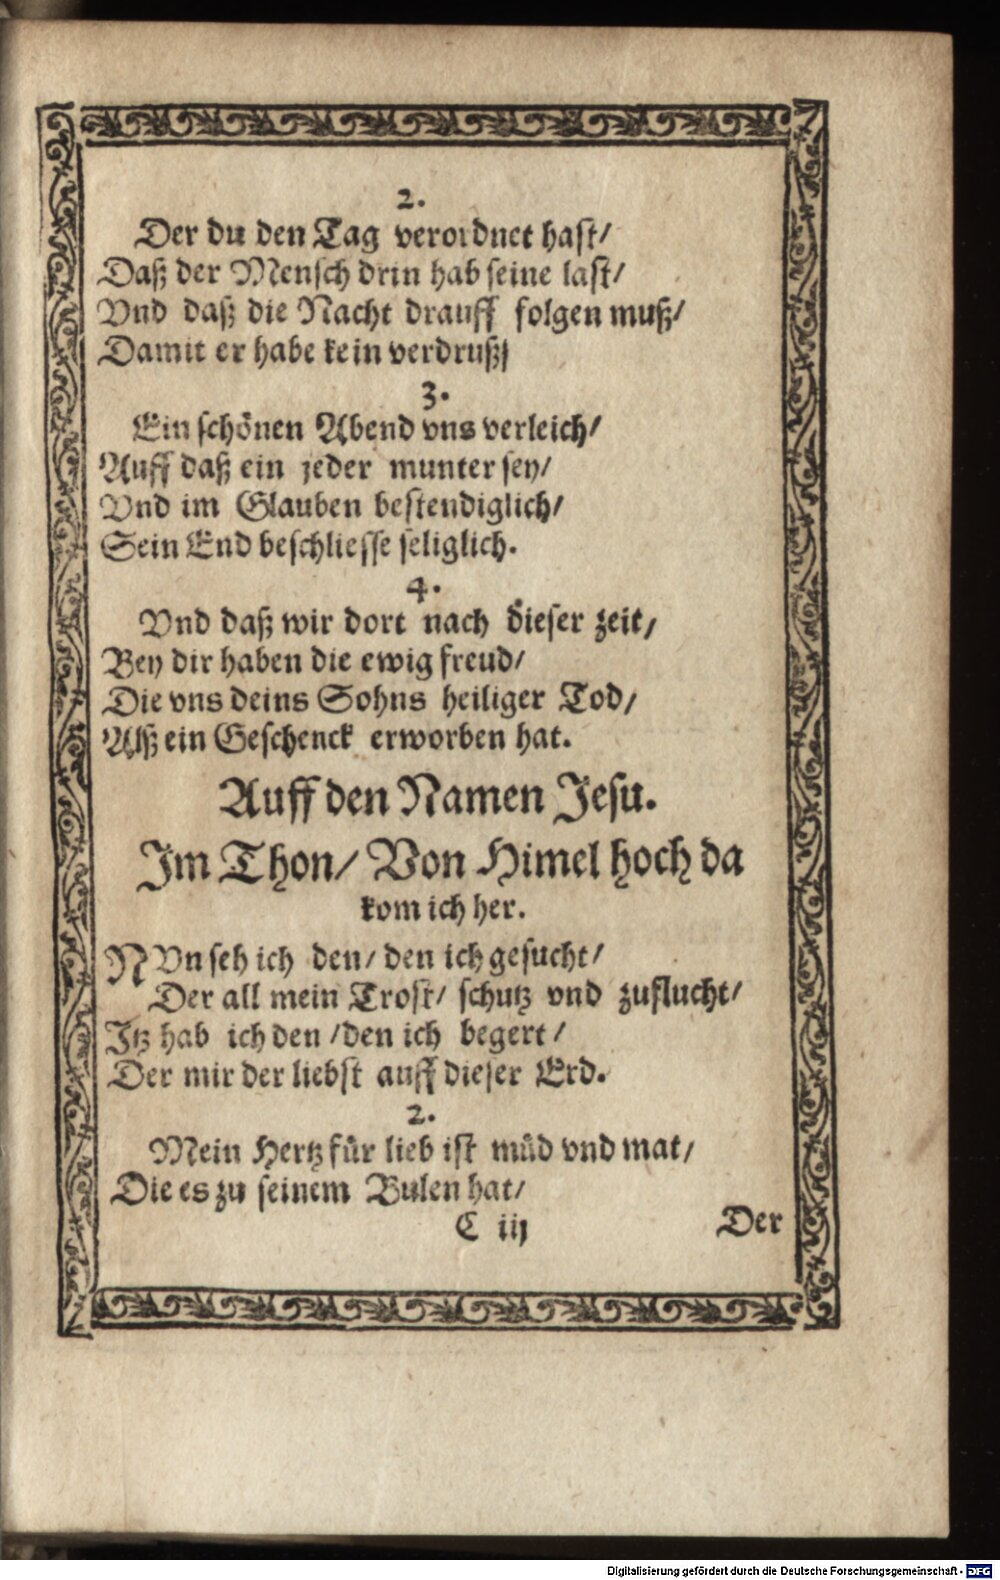 2.
Der du den Tag verordnet hast/
Daß der Mensch drin hab seine last/
Vnd daß die Nacht drauff folgen muß/
Damit er habe kein verdruß/
3.
Ein schönen Abend vns verleich/
Auff daß ein jeder munter sey/
Vnd im Glauben bestendiglich/
Sein End beschliesse seliglich.
4.
Vnd daß wir dort nach dieser zeit/
Bey dir haben die ewig freud/
Die vns deins Sohns heiliger Tod/
Alß ein Geschenck erworben hat.
Auff den Namen Jesu.
Im Thon/ Von Himel hoch da
kom ich her.
NVn seh ich den/ den ich gesucht/
Der all mein Trost/ schutz vnd zuflucht/
Itz hab ich den /den ich begert/
Der mir der liebst auff dieser Erd.
2.
Mein Hertz für lieb ist müd vnd mat/
Die es zu seinem Bulen hat/
C iij Der
Digitalisierung gefördert durch die Deutsche Forschungsgemeinschaft - DFG